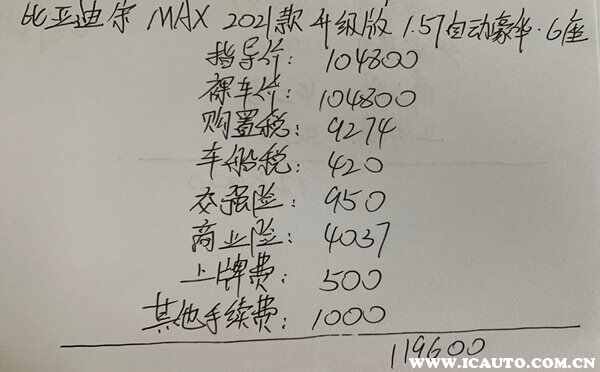 比亚迪宋 MAX 2021款 升级版 1.5T自动豪华·6座
指导价: 104800
裸车价: 104800
购置税: 9274
车船税: 420
交强险: 950
商业险: 4037
上牌费: 500
其他手续费: 1000
119600
爱卡汽车
WWW.ICAUTO.COM.CN